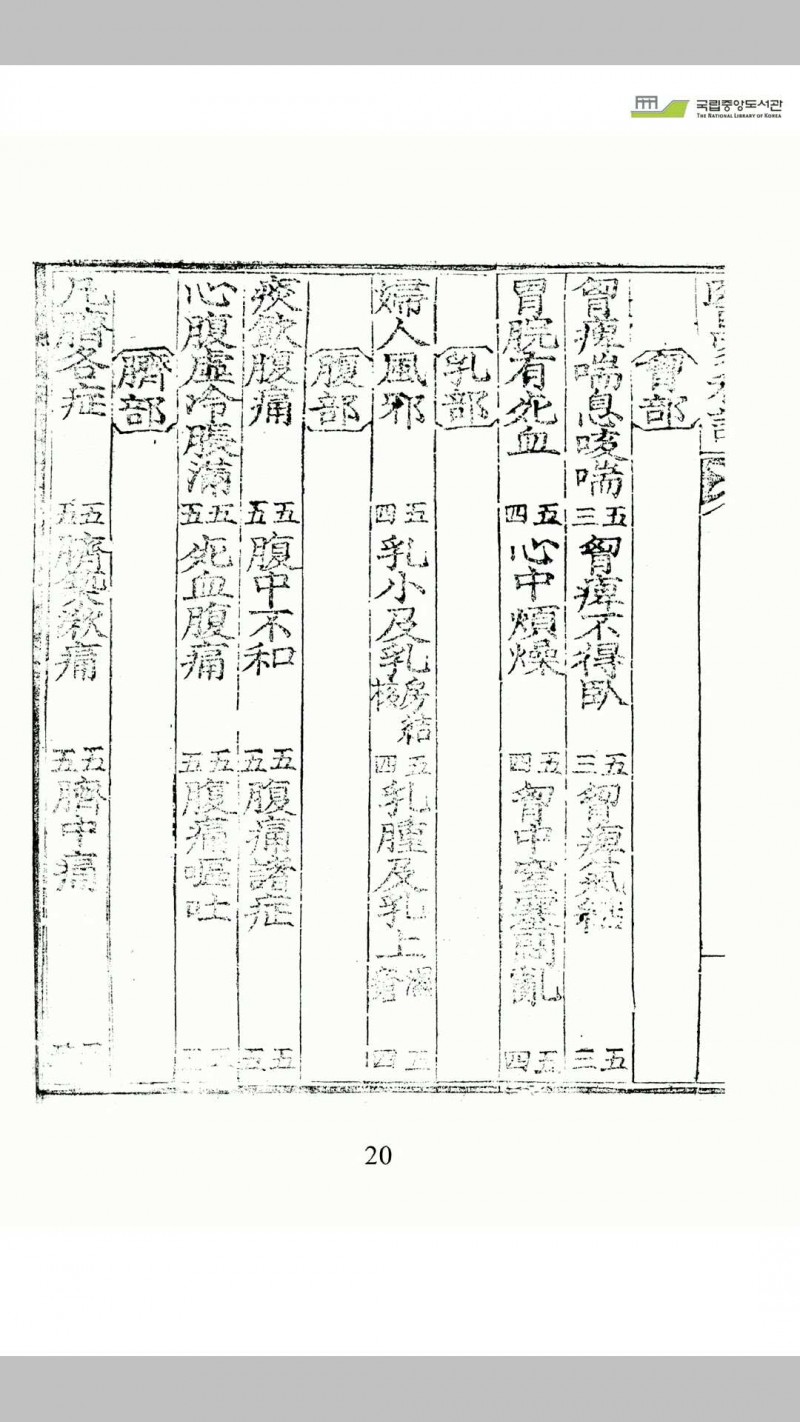 국립중앙도서관
THE NATIONAL LIBRARY OF KOREA
胷部
胷痺喘息咳喘 五三 胷痺不得臥 五三 胷痺氣結 五三
胃脘有死血 五四 心中煩燥 五四 胷中窒塞悶亂 五四
乳部
婦人風邪 五四 乳小及乳房結核 五四 乳腫及乳上 五四
腹部
痰飮腹痛 五五 腹中不和 五五 腹痛諸症 五五
心腹虛冷脹滿 五五 死血腹痛 五五 腹痛嘔吐 五五
臍部
凡臍各症 五五 臍 痛 五五 臍中痛
20